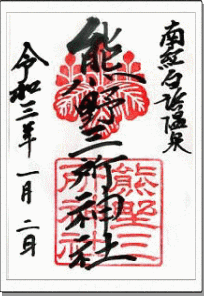 南紅白浜温泉
能野三所神社
熊野三所神社
令和三年一月二日